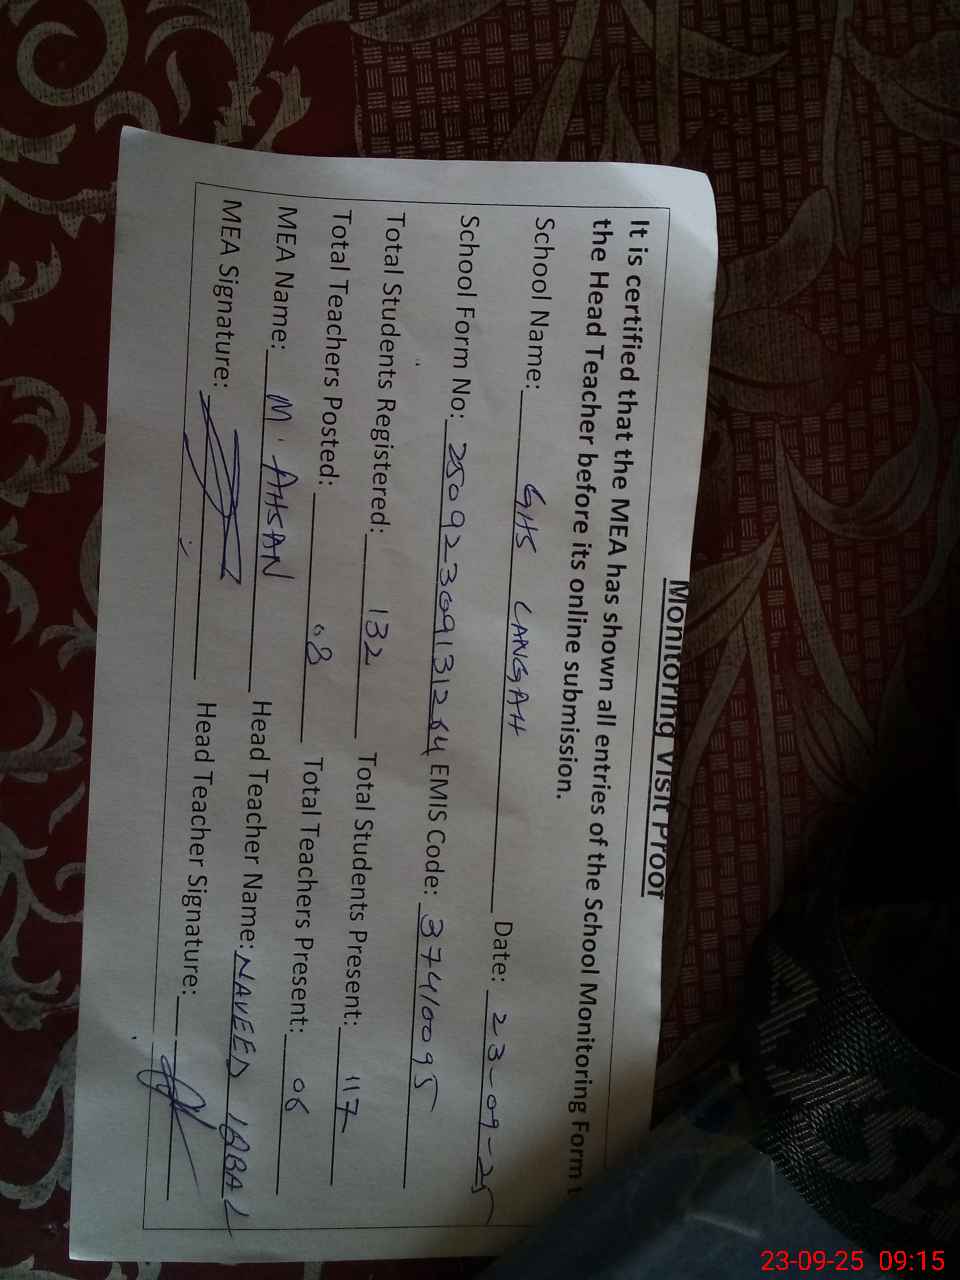 Monitoring Visit Proof
It is certified that the MEA has shown all entries of the School Monitoring Form t
the Head Teacher before its online submission.
School Name: GHS LANGAH Date: 23-09-25
School Form No: 25092309131264 EMIS Code: 37410095
Total Students Registered: 132 Total Students Present: 117
Total Teachers Posted: 08 Total Teachers Present: 06
MEA Name: M. AHSAN Head Teacher Name: NAVEED IQBAL
MEA Signature: Head Teacher Signature:
23-09-25 09:15